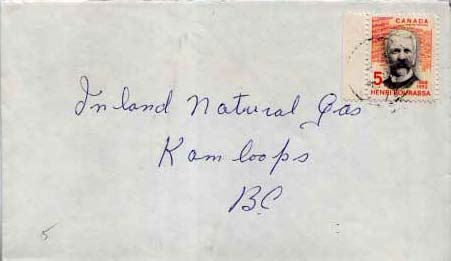 CANADA
5
HENRI BOURASSA
Inland Natural Gas
Kamloops
BC
5